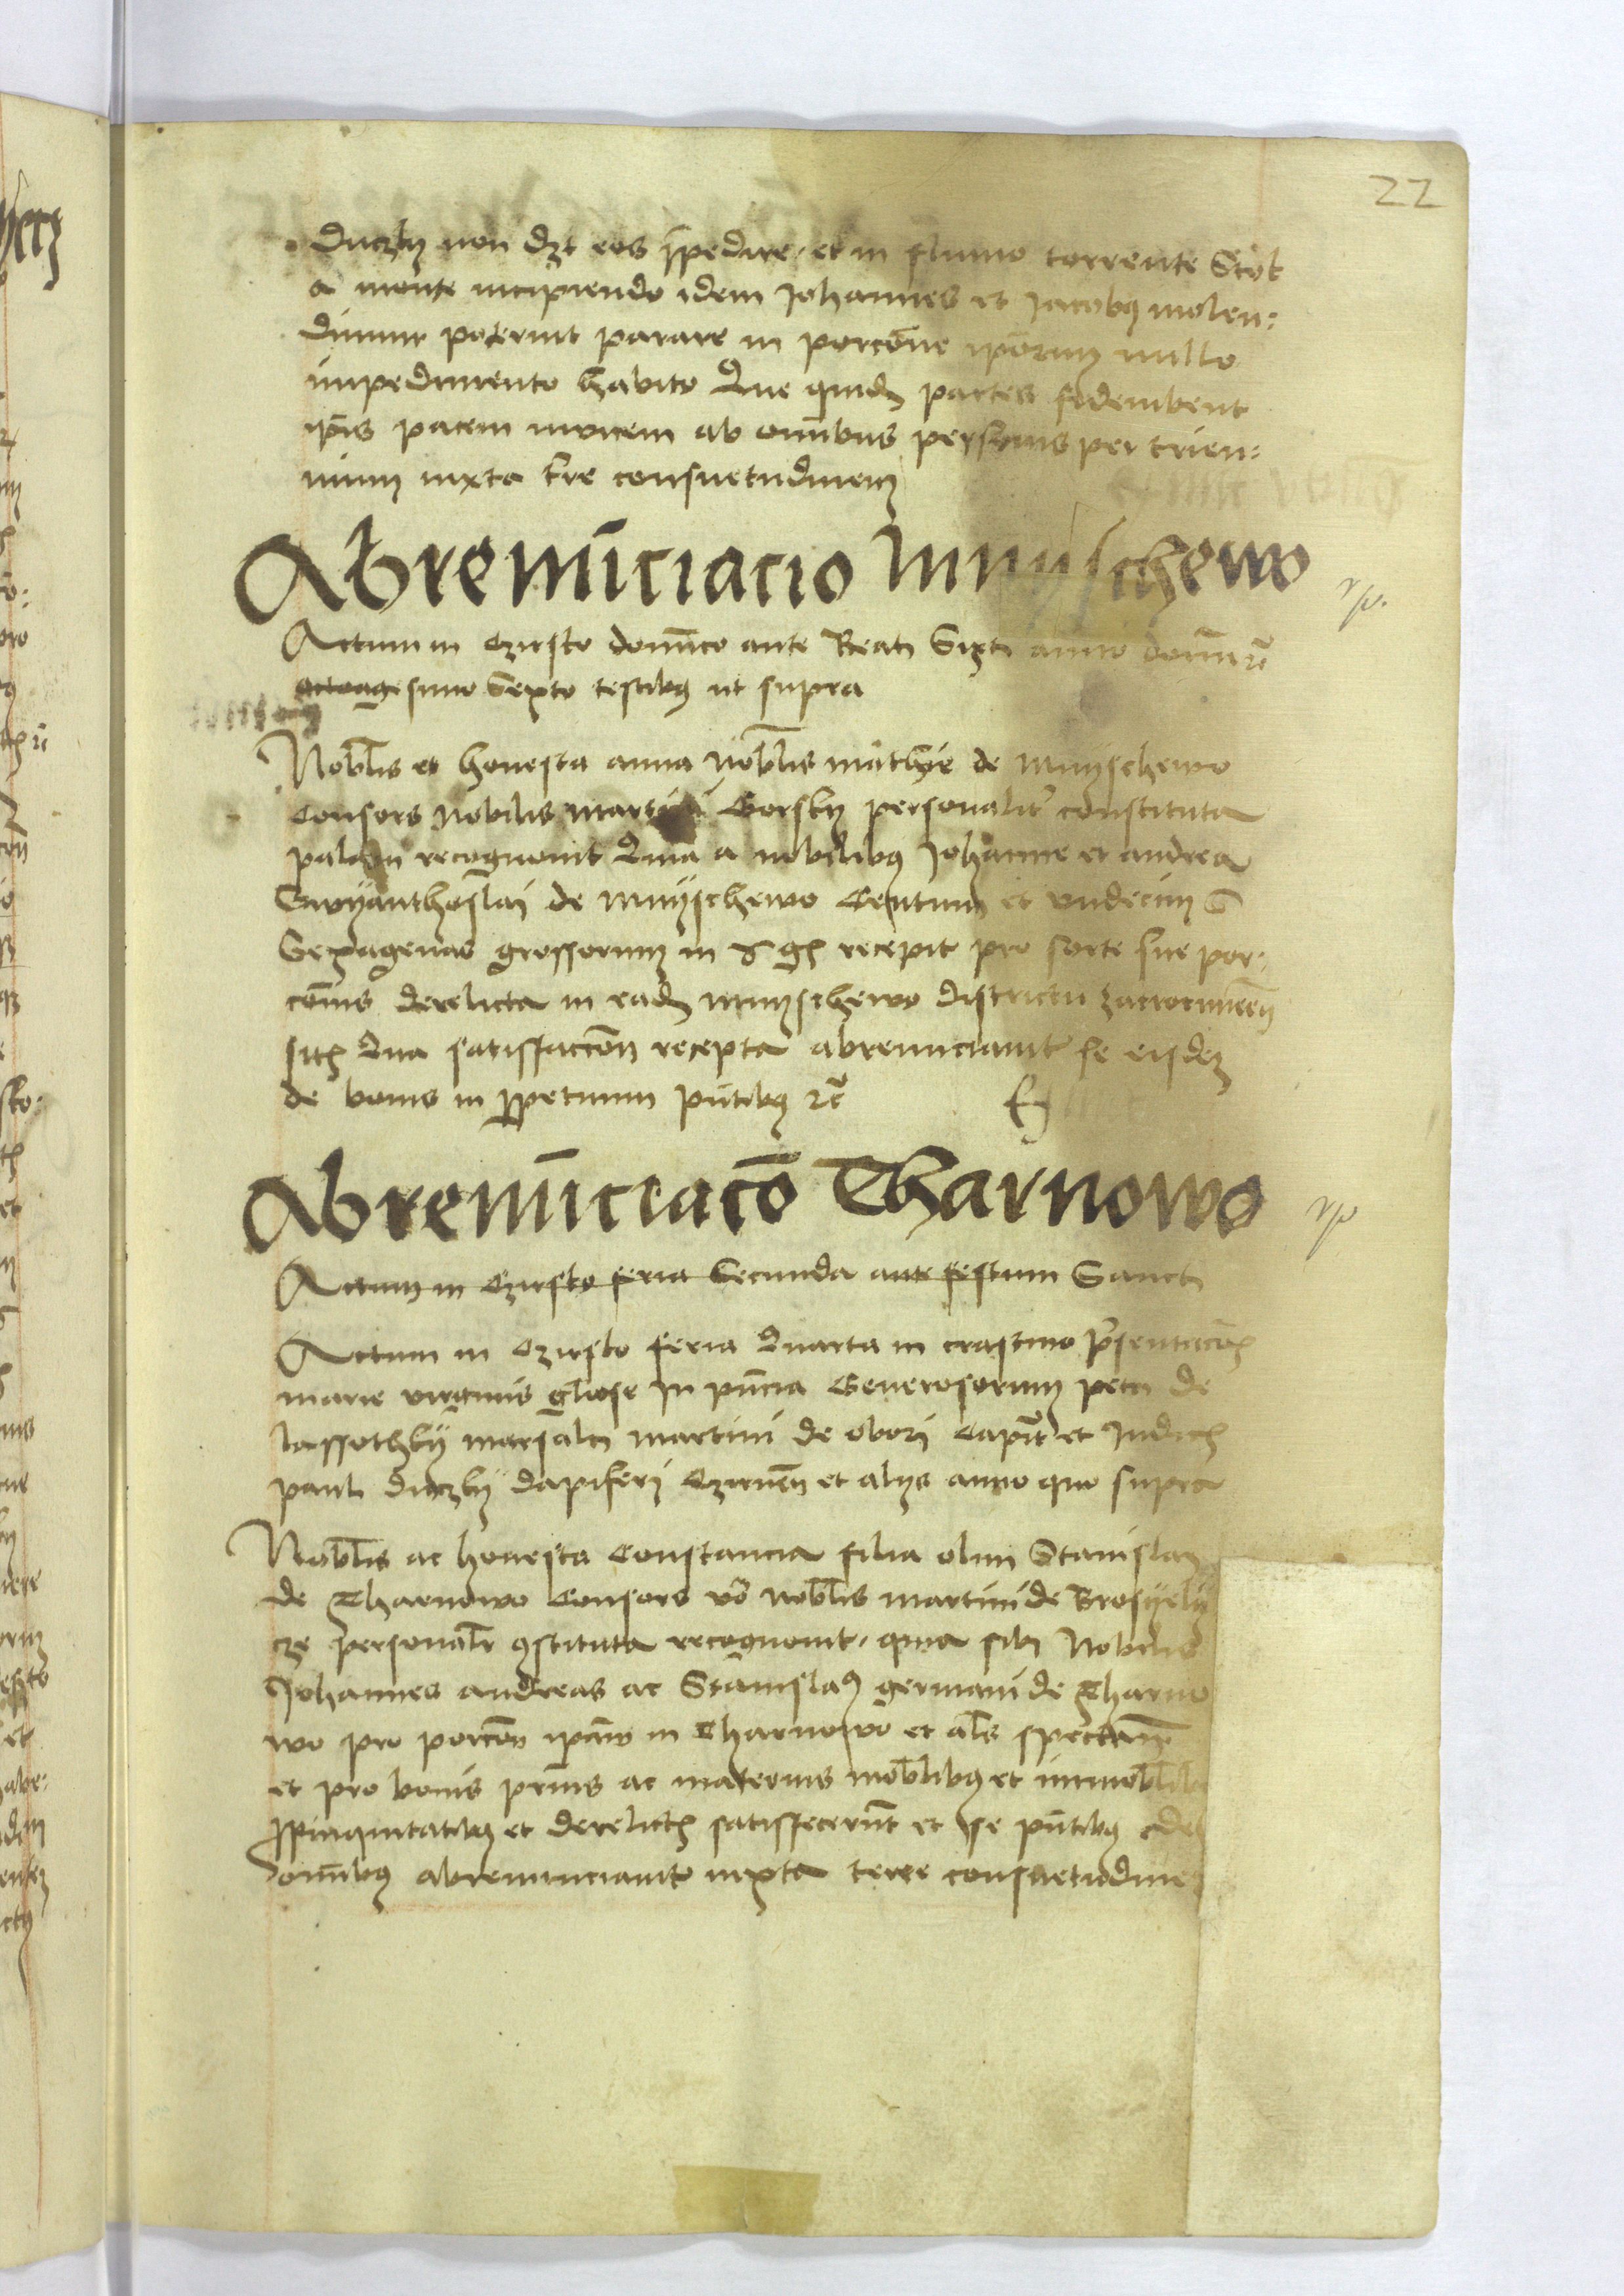 22
Duczky non dzt eos īpedire et in fluuio torrente Stok
a monte incipiendo idem Johannes et Jacobus molen:
dinum poterint parare in porcone ipōrum nullo
impedimento habito Que quidem partes fideiubent
ipīs pacem invicem ab omnibus personis per trien:
nium iuxta tre consuetudinem
Abrenūciacio Mnyschewo
Actum in Czirsko domīco ante Beati Sixti anno domini
octuagesimo Sexto testibus ut supra
Nobīlis et honesta anna nobīlis mathie de Mnyschewo
Consors nobilis martini Gorsky personalit constituta
palam recognovit Quia a nobilibus Johanne et andrea
Swyanthoslai de Mnyschewo Centum et undecim
Sexagenas grossorum in recepit pro sorte sue por:
cōnis derelicta in eadem Mnyschewo districtu zacrocimen
sith Qua satisfaccōn recepta abrenunciavit se eisdem
de bonis in ppetuum pūtibus
Abrenūciacō Tharnowo
Actum in Czirsko feria Secunda ante festum Sancti
Actum in Czirsko feria Quarta in crastino psentacōis
marie virginis gliose In pūcia Generosorum petri de
lassothky marsalci martini de obori Capit et Judicis
pauli duczky dapiferi Czirnen et alys anno quo supra
Nobīlis ac honesta Constancia filia olim Stanislai
de Tharnowo Consors vō nobīlis martini de Brosyely
cze personalr 9stituta recognovit quia sibi Nobilis
Johannes andreas ac Stanislaus germani de Tharno
wo pro porcōn ipam in Tharnowo et als spectan
et pro bonis prīnis ac maternis mobīlibus et immobīlibus
ppinquitatibus et derelictis satisfecerūt et se pūtibus de
omībus abrenunciavit iuxta terre consuetudine